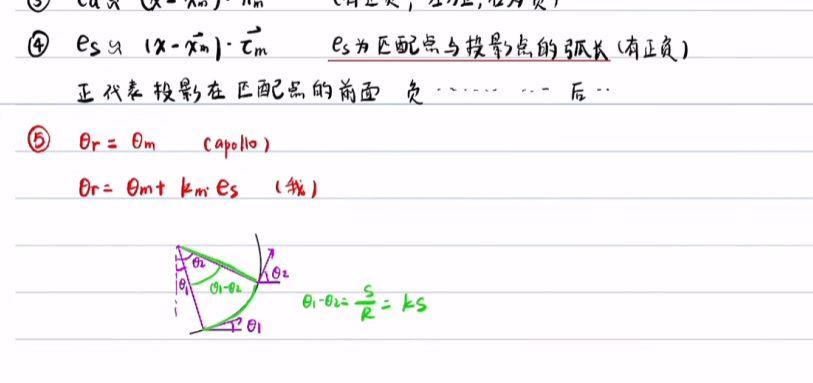 ④ es ≈ (x - xm⃗) · τm⃗ es为匹配点与投影点的弧长(有正负)
正代表投影在匹配点的前面 负 ········· ··· 后 ··
⑤ θr = θm (apollo)
θr = θm + km·es (我)
θ2
θ1
θ1-θ2
θ2
θ1
θ1-θ2 = S/R = kS